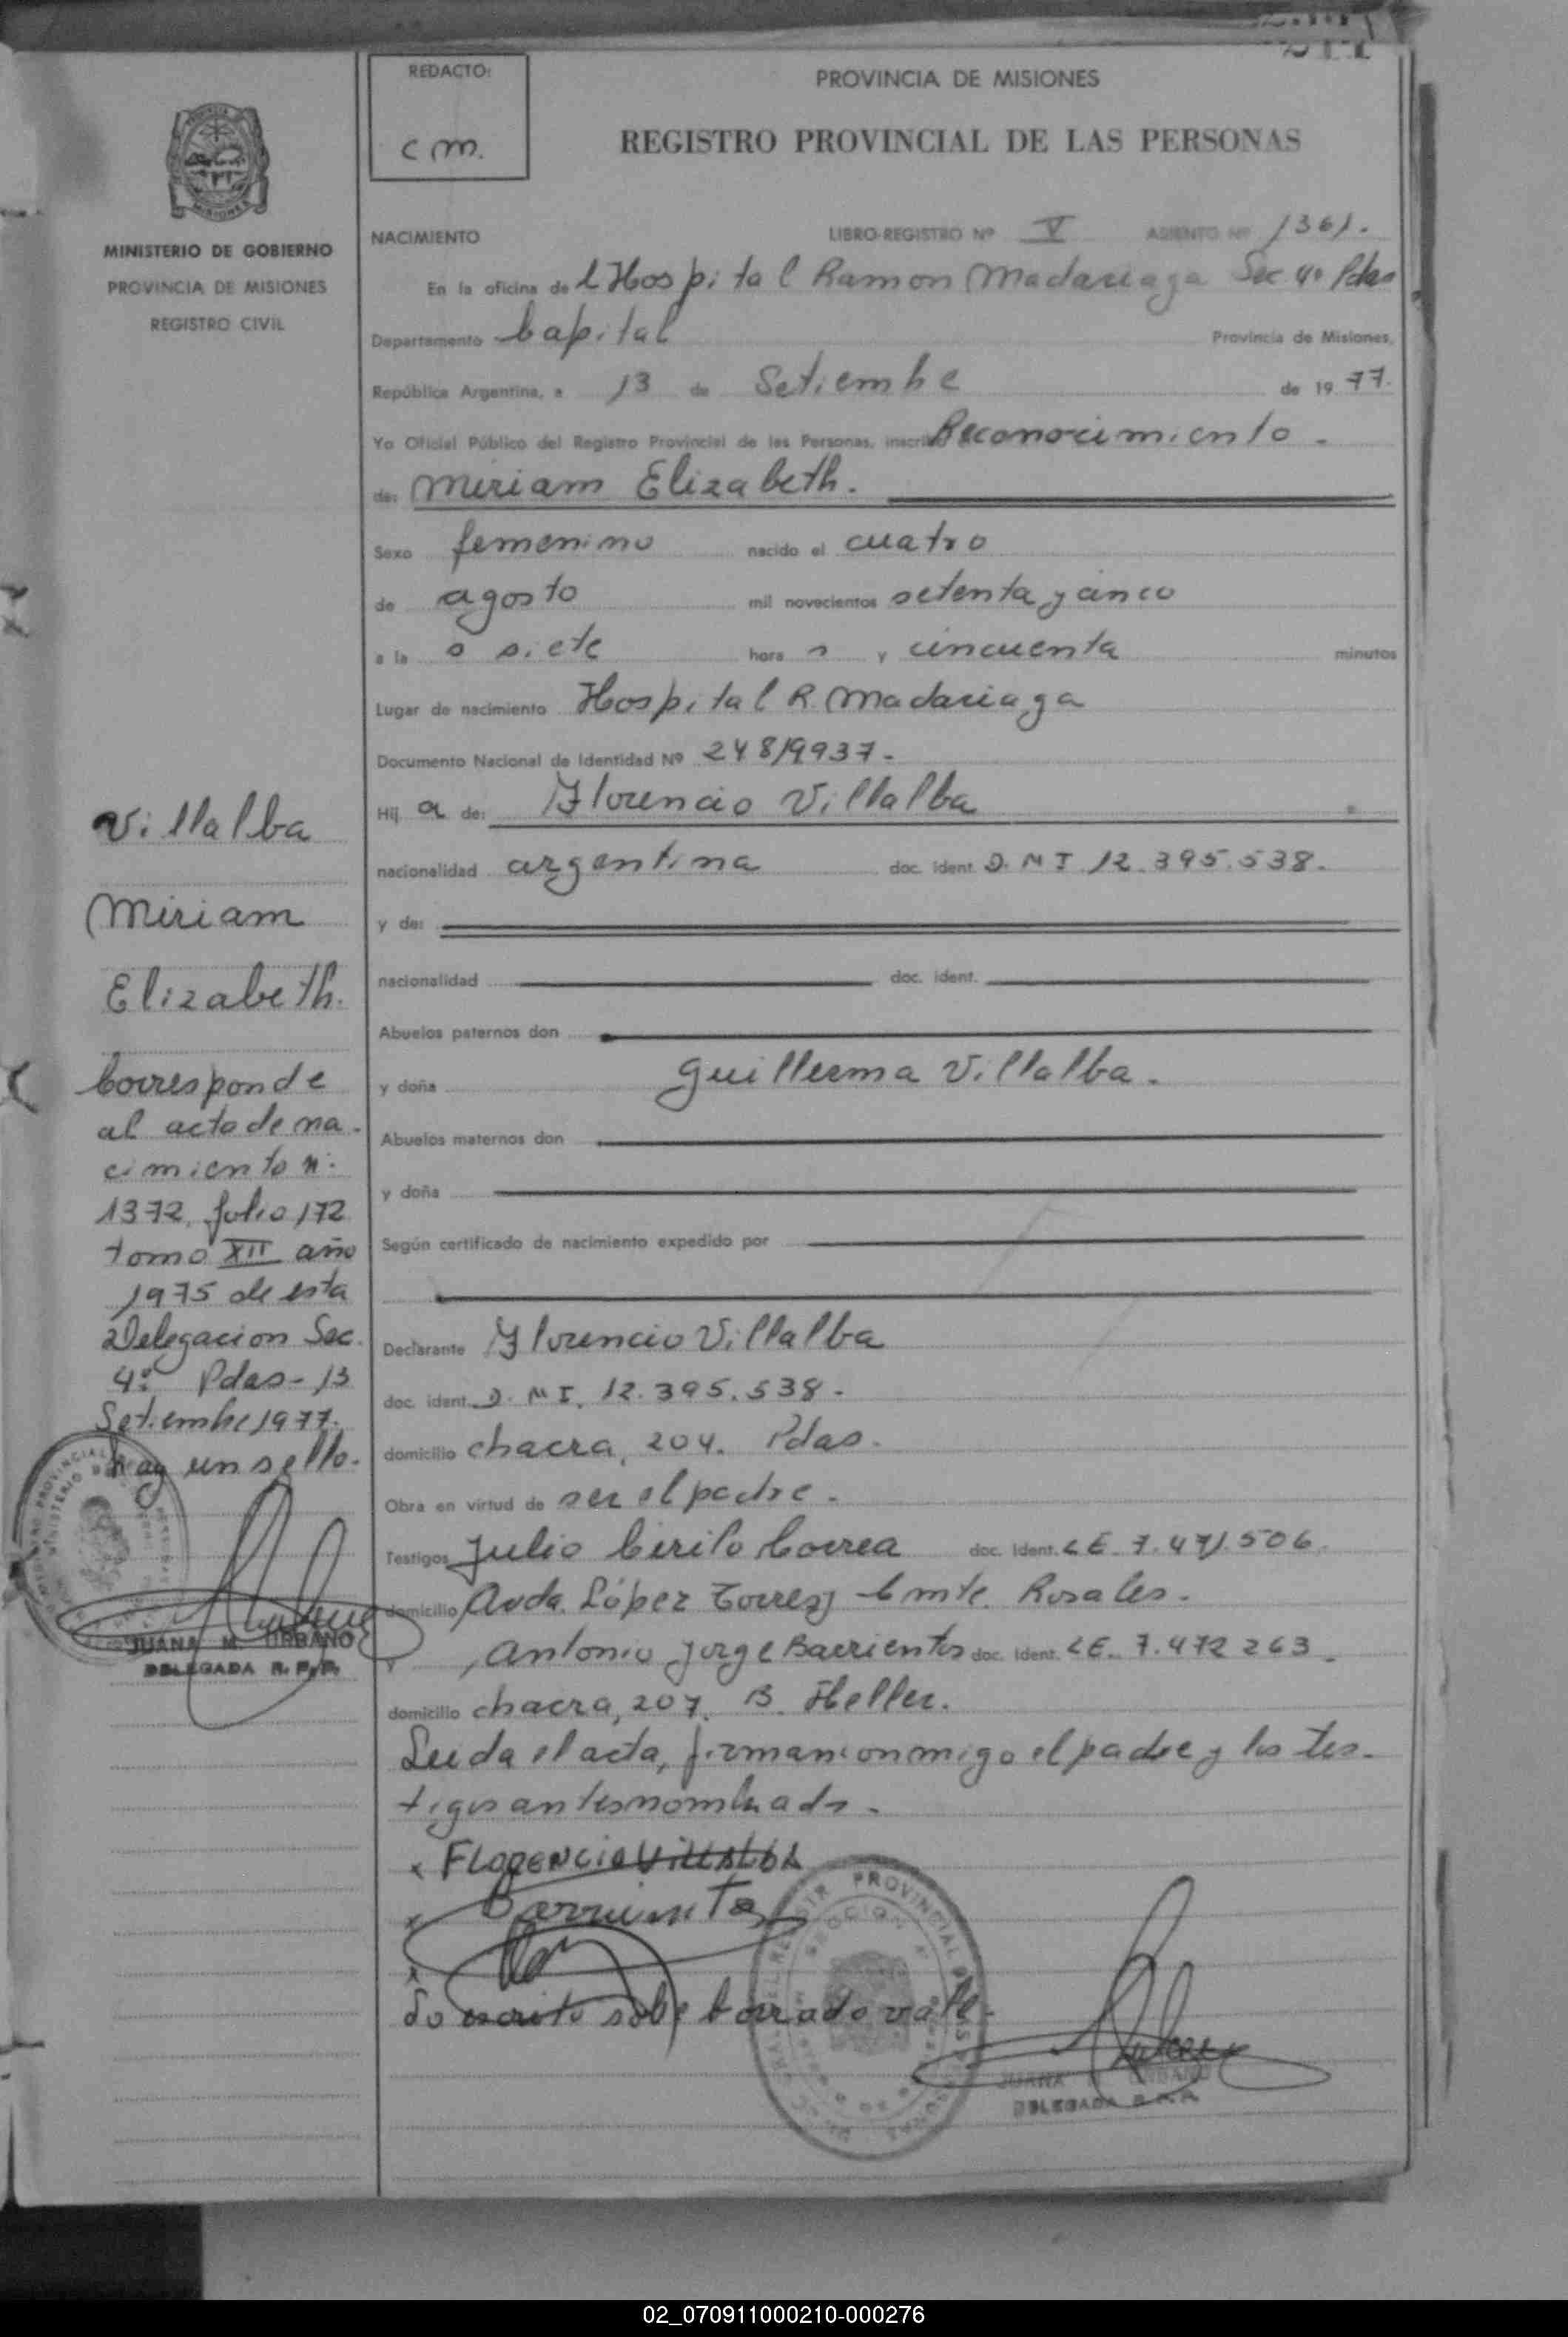 REDACTO:
c m.
PROVINCIA DE MISIONES
REGISTRO PROVINCIAL DE LAS PERSONAS
MISIONES
MINISTERIO DE GOBIERNO
PROVINCIA DE MISIONES
REGISTRO CIVIL
NACIMIENTO LIBRO-REGISTRO Nº V ASIENTO Nº 1361.
En la oficina de l Hospital Ramon Madariaga Sec 4º Pdas
Departamento Capital Provincia de Misiones,
República Argentina, a 13 de Setiembre de 19 77.
Yo Oficial Público del Registro Provincial de las Personas, inscribo Reconocimiento.
de: Miriam Elizabeth.
Sexo femenino nacido el cuatro
de agosto mil novecientos setenta y cinco
a la s siete hora s y cincuenta minutos
Lugar de nacimiento Hospital R. Madariaga
Documento Nacional de Identidad Nº 24819937-
Hij a de: Florencio Villalba
nacionalidad argentina doc. ident. D.N I 12.395.538.
y de:
nacionalidad doc. ident.
Abuelos paternos don
y doña Guillerma Villalba.
Abuelos maternos don
y doña
Según certificado de nacimiento expedido por
Declarante Florencio Villalba
doc. ident. D. N I. 12.395.538-
domicilio chacra, 204. Pdas.
Obra en virtud de ser el padre.
Testigos Julio Cirilo Correa doc. Ident. LE 7.471.506.
domicilio Avda. López Torres y Cmte. Rosales.
y Antonio Jorge Barrientos doc. Ident. LE. 7.472 263.
domicilio chacra, 207. B. Heller.
Leida el acta, firman conmigo el padre y los tes-
tigos antes nombrados.
x FLORENCIO VillaLbA
x Barrientos
x
Lo escrito sobre borrado vale.
JUANA M. URBANO
DELEGADA R. P. P.
Villalba
Miriam
Elizabeth.
Corresponde
al acta de na-
cimiento nº
1372, folio 172
tomo XII año
1975 de esta
Delegacion Sec.
4º Pdas- 13
Setiembre 1977.
hay un sello.
JUANA M. URBANO
DELEGADA R. P. P.
02_070911000210-000276